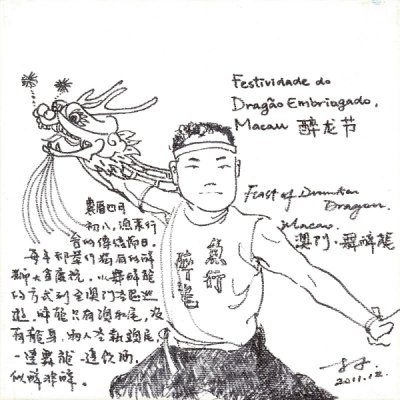 Festividade do
Dragão Embriagado,
Macau 醉龙节
Feast of Drunken
Dragon.
Macau.
澳門·舞醉龍
魚行
醉龍
農曆四月
初八,漁業行
會的傳統節日。
每年都举行獨有的
大會慶祝。以舞醉龍
的方式到全澳门各區巡
遊。醉龍只有頭和尾,沒
有龍身。兩人各執頭尾
一邊舞龍一邊飲酒,
似醉非醉。
2011.12.